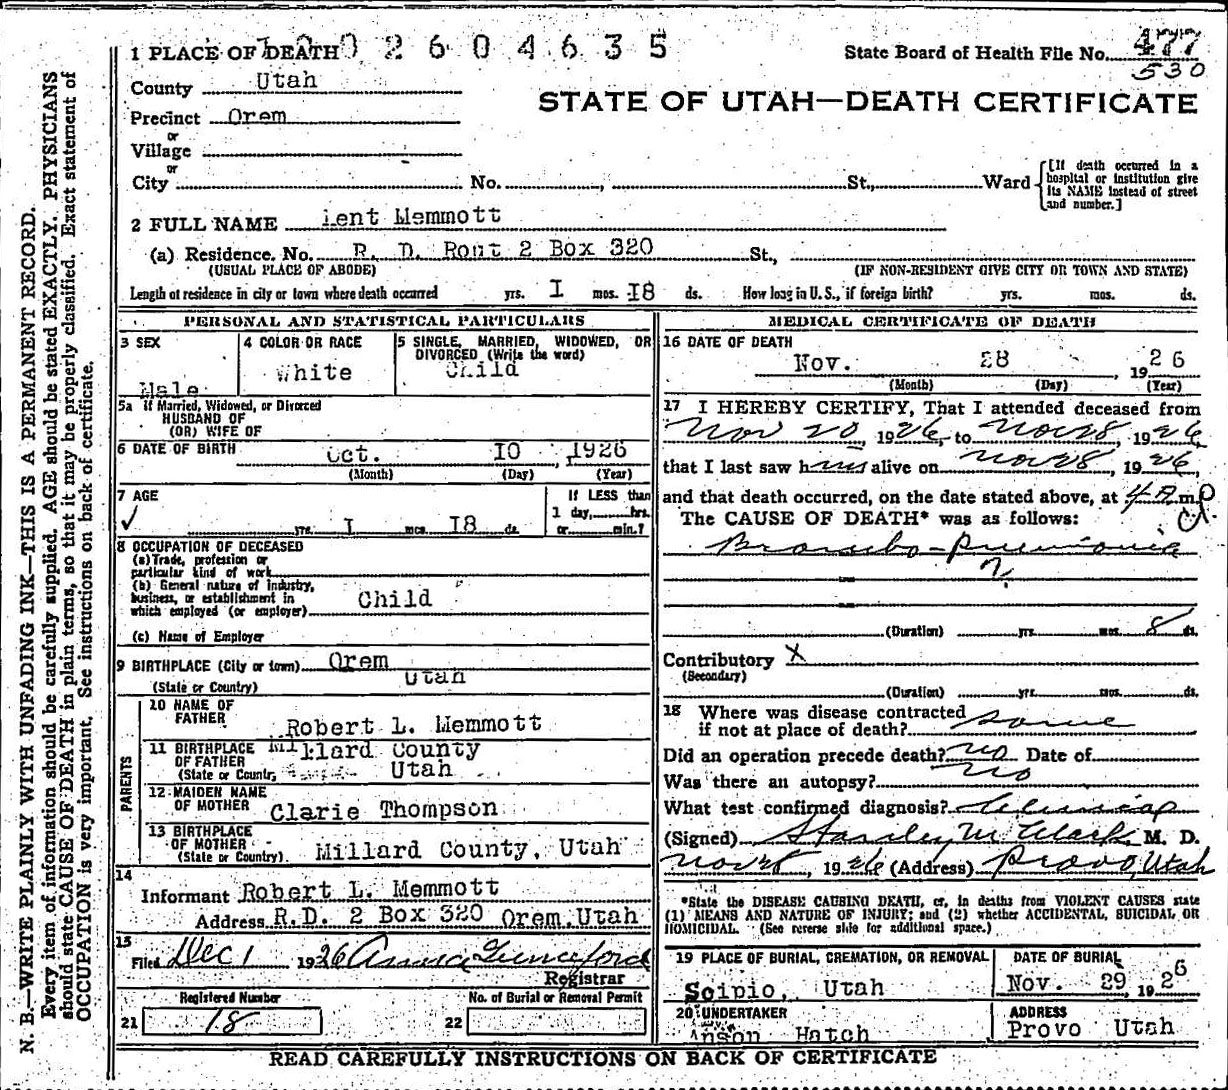 1 PLACE OF DEATH 2604635
State Board of Health File No. 477
530
County Utah
STATE OF UTAH—DEATH CERTIFICATE
Precinct Orem
or
Village
or
City No. , St., Ward
[If death occurred in a hospital or institution give its NAME instead of street and number.]
2 FULL NAME Lent Memmott
(a) Residence. No. R. D. Rout 2 Box 320 St.,
(USUAL PLACE OF ABODE) (IF NON-RESIDENT GIVE CITY OR TOWN AND STATE)
Length of residence in city or town where death occurred yrs. I mos. I8 ds. How long in U. S., if foreign birth? yrs. mos. ds.
PERSONAL AND STATISTICAL PARTICULARS
3 SEX
Male
4 COLOR OR RACE
White
5 SINGLE, MARRIED, WIDOWED, OR
DIVORCED (Write the word)
Child
5a If Married, Widowed, or Divorced
HUSBAND OF
(OR) WIFE OF
6 DATE OF BIRTH Oct. IO , 1926
(Month) (Day) (Year)
7 AGE
✓
yrs. I mos. I8 ds.
If LESS than
1 day, hrs.
or min.?
8 OCCUPATION OF DECEASED
(a) Trade, profession or
particular kind of work
(b) General nature of industry,
business, or establishment in
which employed (or employer) Child
(c) Name of Employer
9 BIRTHPLACE (City or town) Orem
(State or Country) Utah
PARENTS
10 NAME OF
FATHER Robert L. Memmott
11 BIRTHPLACE
OF FATHER
(State or Country)
Millard County
Utah
12 MAIDEN NAME
OF MOTHER Clarie Thompson
13 BIRTHPLACE
OF MOTHER
(State or Country). Millard County, Utah
14
Informant Robert L. Memmott
Address R.D. 2 Box 320 Orem, Utah
15
Filed Dec 1 1926
Registrar
Registered Number No. of Burial or Removal Permit
21 18 22
MEDICAL CERTIFICATE OF DEATH
16 DATE OF DEATH
Nov. 28 , 1926
(Month) (Day) (Year)
17 I HEREBY CERTIFY, That I attended deceased from
Nov 20, 1926, to Nov 28, 1926
that I last saw him alive on Nov 28, 1926
and that death occurred, on the date stated above, at 4 m.
The CAUSE OF DEATH* was as follows:
Broncho-pneumonia
(Duration) yrs. mos. 8 ds.
Contributory X
(Secondary)
(Duration) yrs. mos. ds.
18 Where was disease contracted
if not at place of death? same
Did an operation precede death? no Date of
Was there an autopsy? no
What test confirmed diagnosis? Clinical
(Signed) Stanley M Clark, M. D.
Nov 28, 1926 (Address) Provo, Utah
*State the DISEASE CAUSING DEATH, or, in deaths from VIOLENT CAUSES state
(1) MEANS AND NATURE OF INJURY; and (2) whether ACCIDENTAL, SUICIDAL OR
HOMICIDAL. (See reverse side for additional space.)
19 PLACE OF BURIAL, CREMATION, OR REMOVAL
Scipio, Utah
DATE OF BURIAL
Nov. 29, 1926
20 UNDERTAKER
Anson Hatch
ADDRESS
Provo Utah
READ CAREFULLY INSTRUCTIONS ON BACK OF CERTIFICATE
N. B.—WRITE PLAINLY WITH UNFADING INK—THIS IS A PERMANENT RECORD.
Every item of information should be carefully supplied. AGE should be stated EXACTLY. PHYSICIANS
should state CAUSE OF DEATH in plain terms, so that it may be properly classified. Exact statement of
OCCUPATION is very important. See instructions on back of certificate.